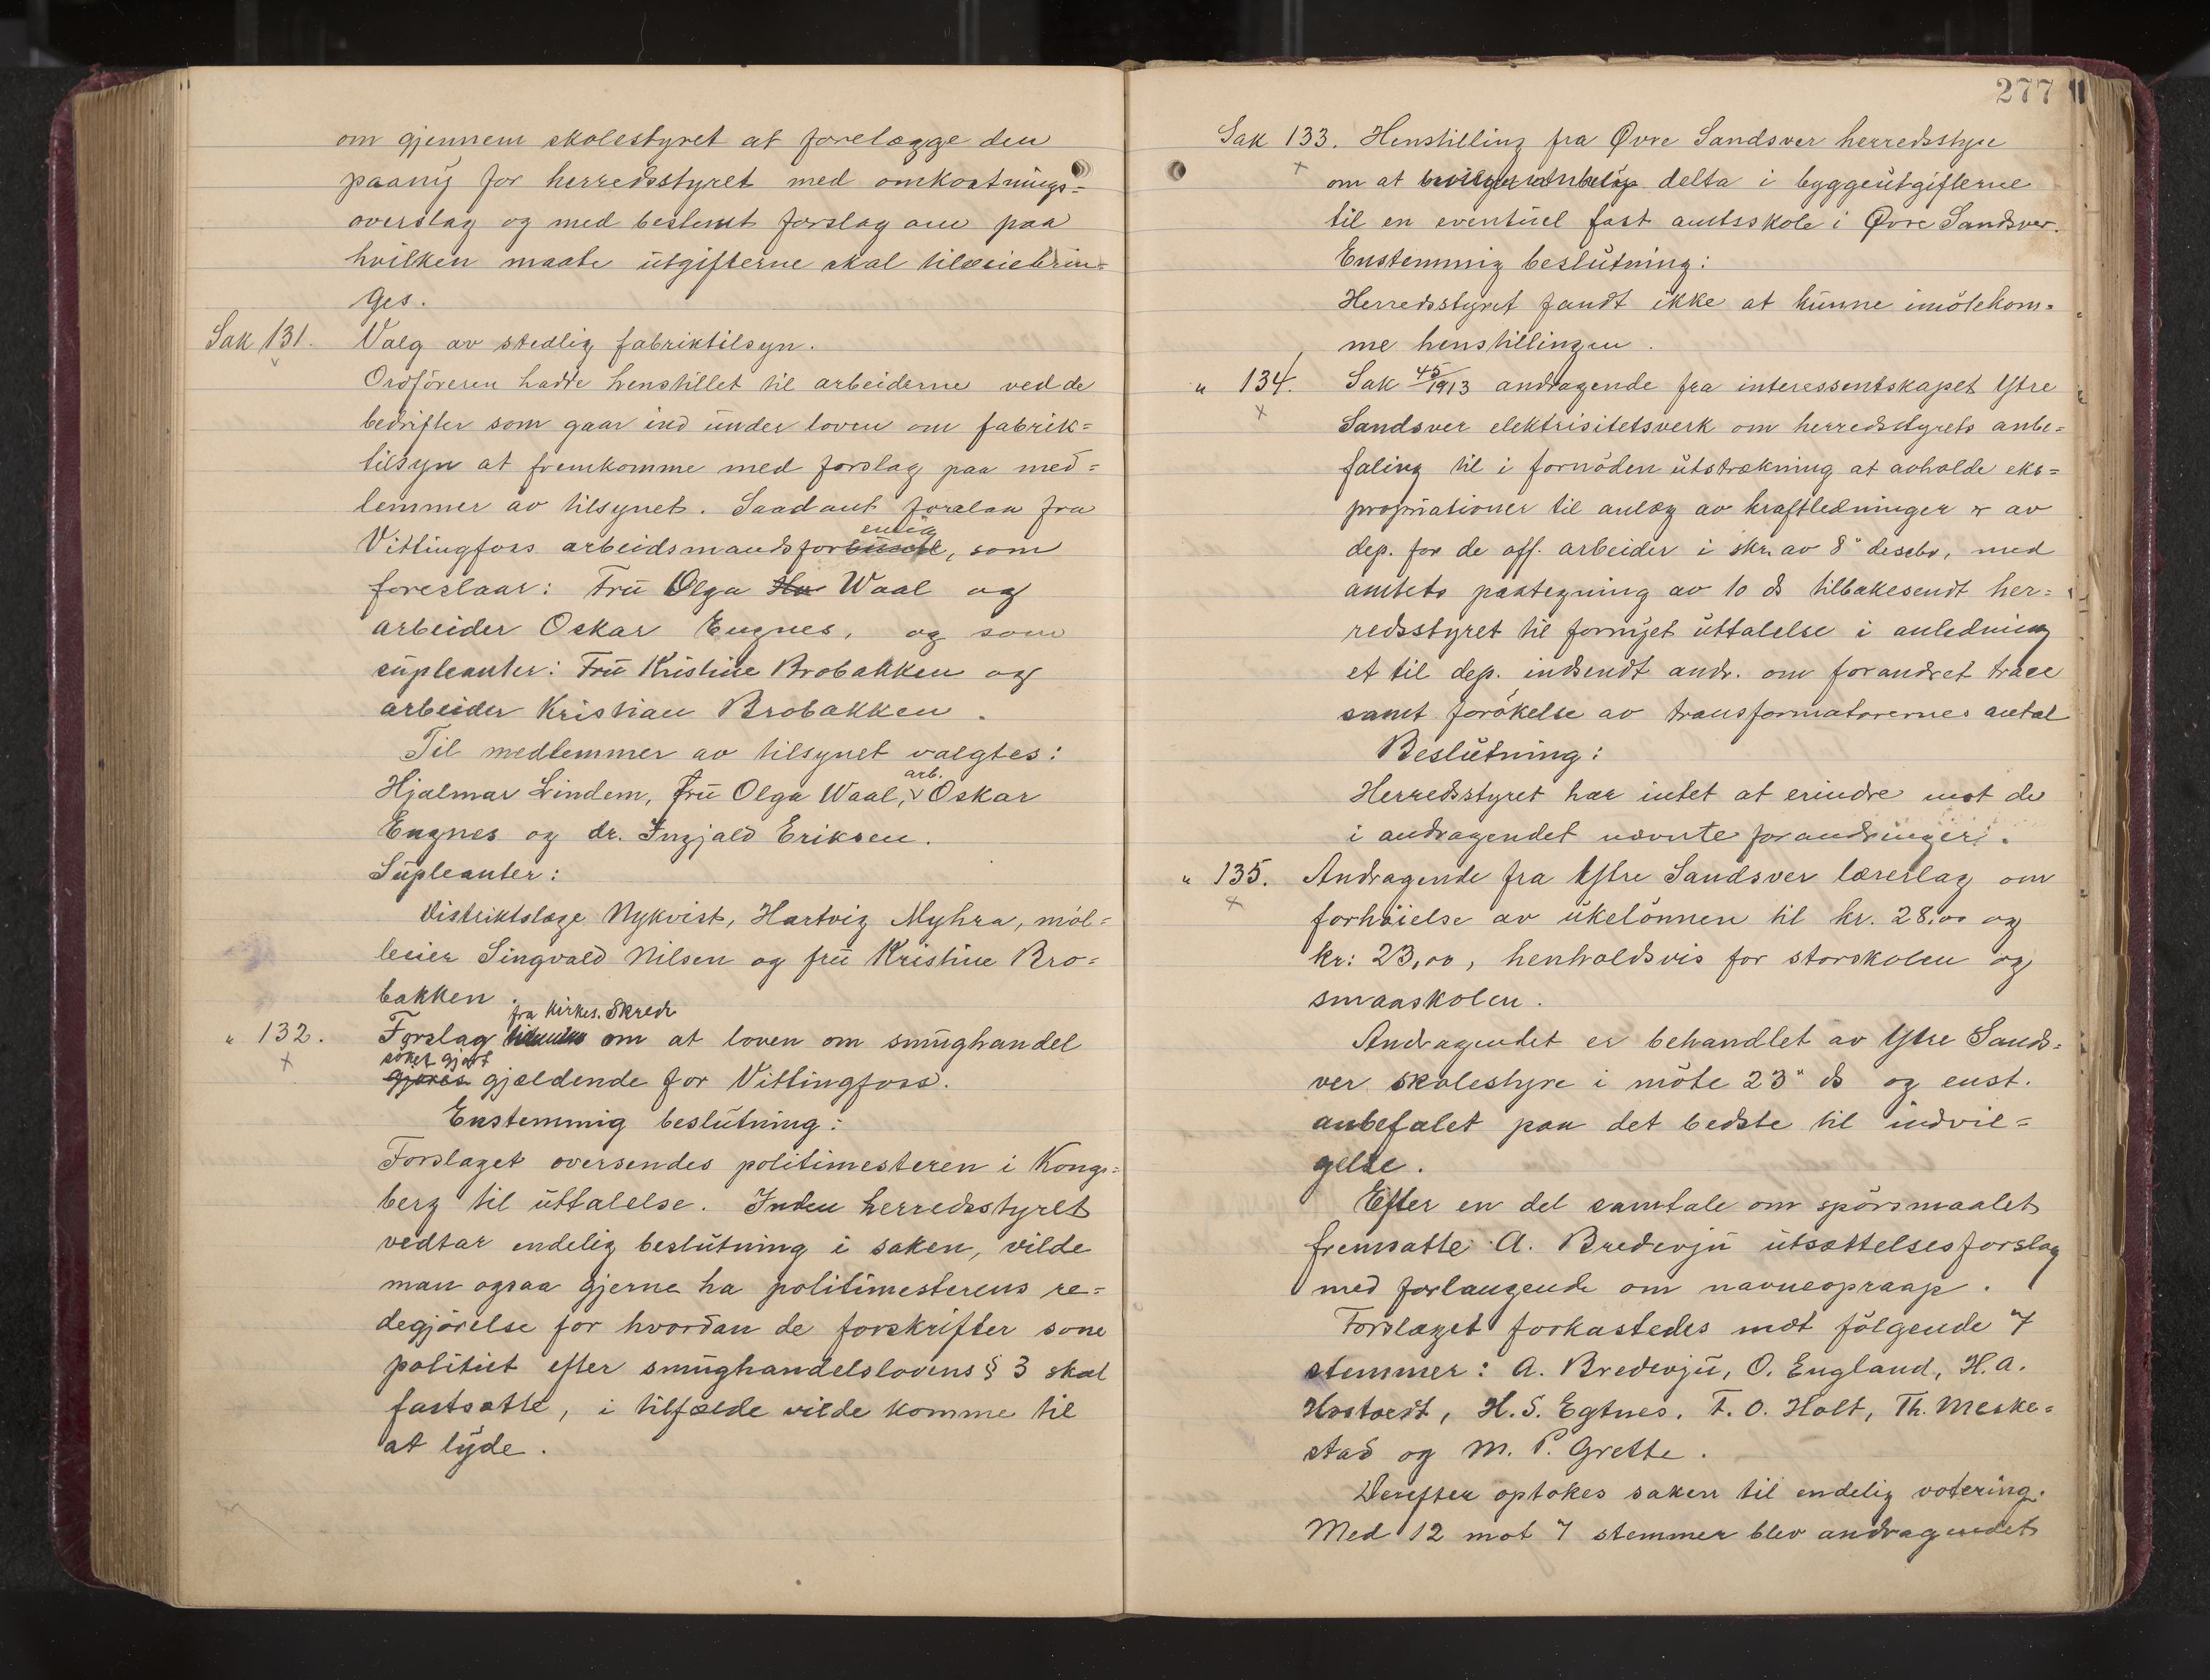 om gjennem skolestyret at forelægge den
paany for herredsstyret med omkostnings=
overslag og med bestemt forslag om paa
hvilken maate utgifterne skal tilveiebrin=
ges.
Sak 131. Valg av stedlig fabriktilsyn.
Ordföreren hadde henstillet til arbeiderne ved de
bedrifter som gaar ind under loven om fabrik=
tilsyn at fremkomme med forslag paa med=
lemmer av tilsynet. Saadant forelaa fra
enig
Vittingfoss arbeidsmandsforbund, som
foreslaar: Fru Olga Waal og
arbeider Oskar Engnes, og som
supleanter: Fru Kristine Brobakken og
arbeider Kristian Brobakken.
Til medlemmer av tilsynet valgtes:
arb.
Hjalmar Lindem, fru Olga Waal, Oskar
Engnes og dr. Ingjald Eriksen.
Supleanter:
Distriktslæge Nykvist, Hartvig Myhra, möl=
leier Singvald Nilsen og fru Kristine Bro=
bakken.
fra Kirkes. Skredr
" 132. Forslag om at loven om smughandel
söket gjort
gjøres gjældende for Vittingfoss.
Enstemmig beslutning:
Forslaget oversendes politimesteren i Kongs=
berg til uttalelse. Inden herredsstyret
vedtar endelig beslutning i saken, vilde
man ogsaa gjerne ha politimesterens re=
degjörelse for hvordan de forskrifter som
politiet efter smughandelslovens § 3 skal
fastsætte, i tilfælde vilde komme til
at lyde.
277
Sak 133. Henstilling fra Øvre Sandsver herredsstyre
om at delta i byggeutgifterne
til en eventuel fast amtsskole i Øvre Sandsver.
Enstemmig beslutning:
Herredsstyret fandt ikke at kunne imötekom=
me henstillingen.
" 134. Sak 45/1913 andragende fra interessentskapet Ytre
Sandsver elektrisitetsverk om herredsstyrets anbe=
faling til i fornöden utstrækning at avholde eks=
propriationer til anlæg av kraftledninger er av
dep. for de off. arbeider i skr. av 8" desebr, med
amtets paategning av 10 ds tilbakesendt her=
redsstyret til fornyet uttalelse i anledning
et til dep. indsendt andr. om forandret trace
samt forökelse av transformatorernes antal
Beslutning:
Herredsstyret har intet at erindre mot de
i andragendet nævnte forandringer.
" 135. Andragende fra Ytre Sandsver lærerlag om
forhöielse av ukelönnen til kr. 28,00 og
kr: 23,00, henholdsvis for storskolen og
smaaskolen.
Andragendet er behandlet av Ytre Sands=
ver skolestyre i möte 23" ds og enst.
anbefalet paa det bedste til indvil=
gelse.
Efter en del samtale om spörsmaalet
fremsatte A. Bredevju utsættelsesforslag
med forlangende om navneopraap.
Forslaget forkastedes mot fölgende 7
stemmer: A. Bredevju, O. England, H.A.
Hostvedt, H.S. Egtnes, T.O. Holt, Th. Meske=
stad og M. P. Grette.
Derefter optokes saken til endelig votering.
Med 12 mot 7 stemmer blev andragendet